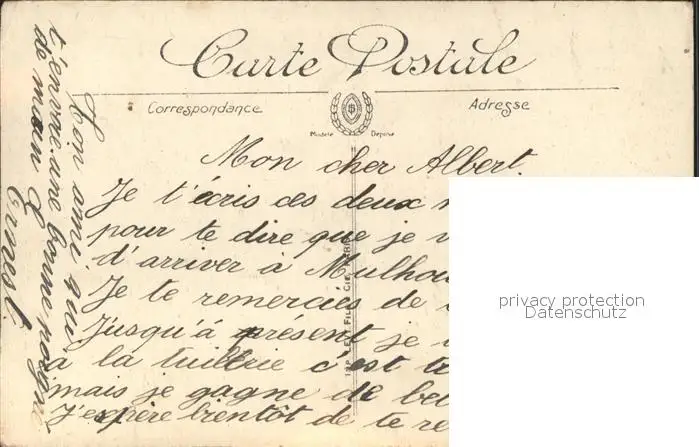 Carte Postale
Correspondance
Adresse
Modèle Déposé
Mon cher Albert.
Je t'écris ces deux
pour te dire que je
d'arriver à
Je te remercies de
Jusqu'á présent je
à la tuillrie c'est
mais je gagne de
J'espère bientôt de te
Ton ami qui
t'envoie une bonne
de main
Ernest.
privacy protection
Datenschutz